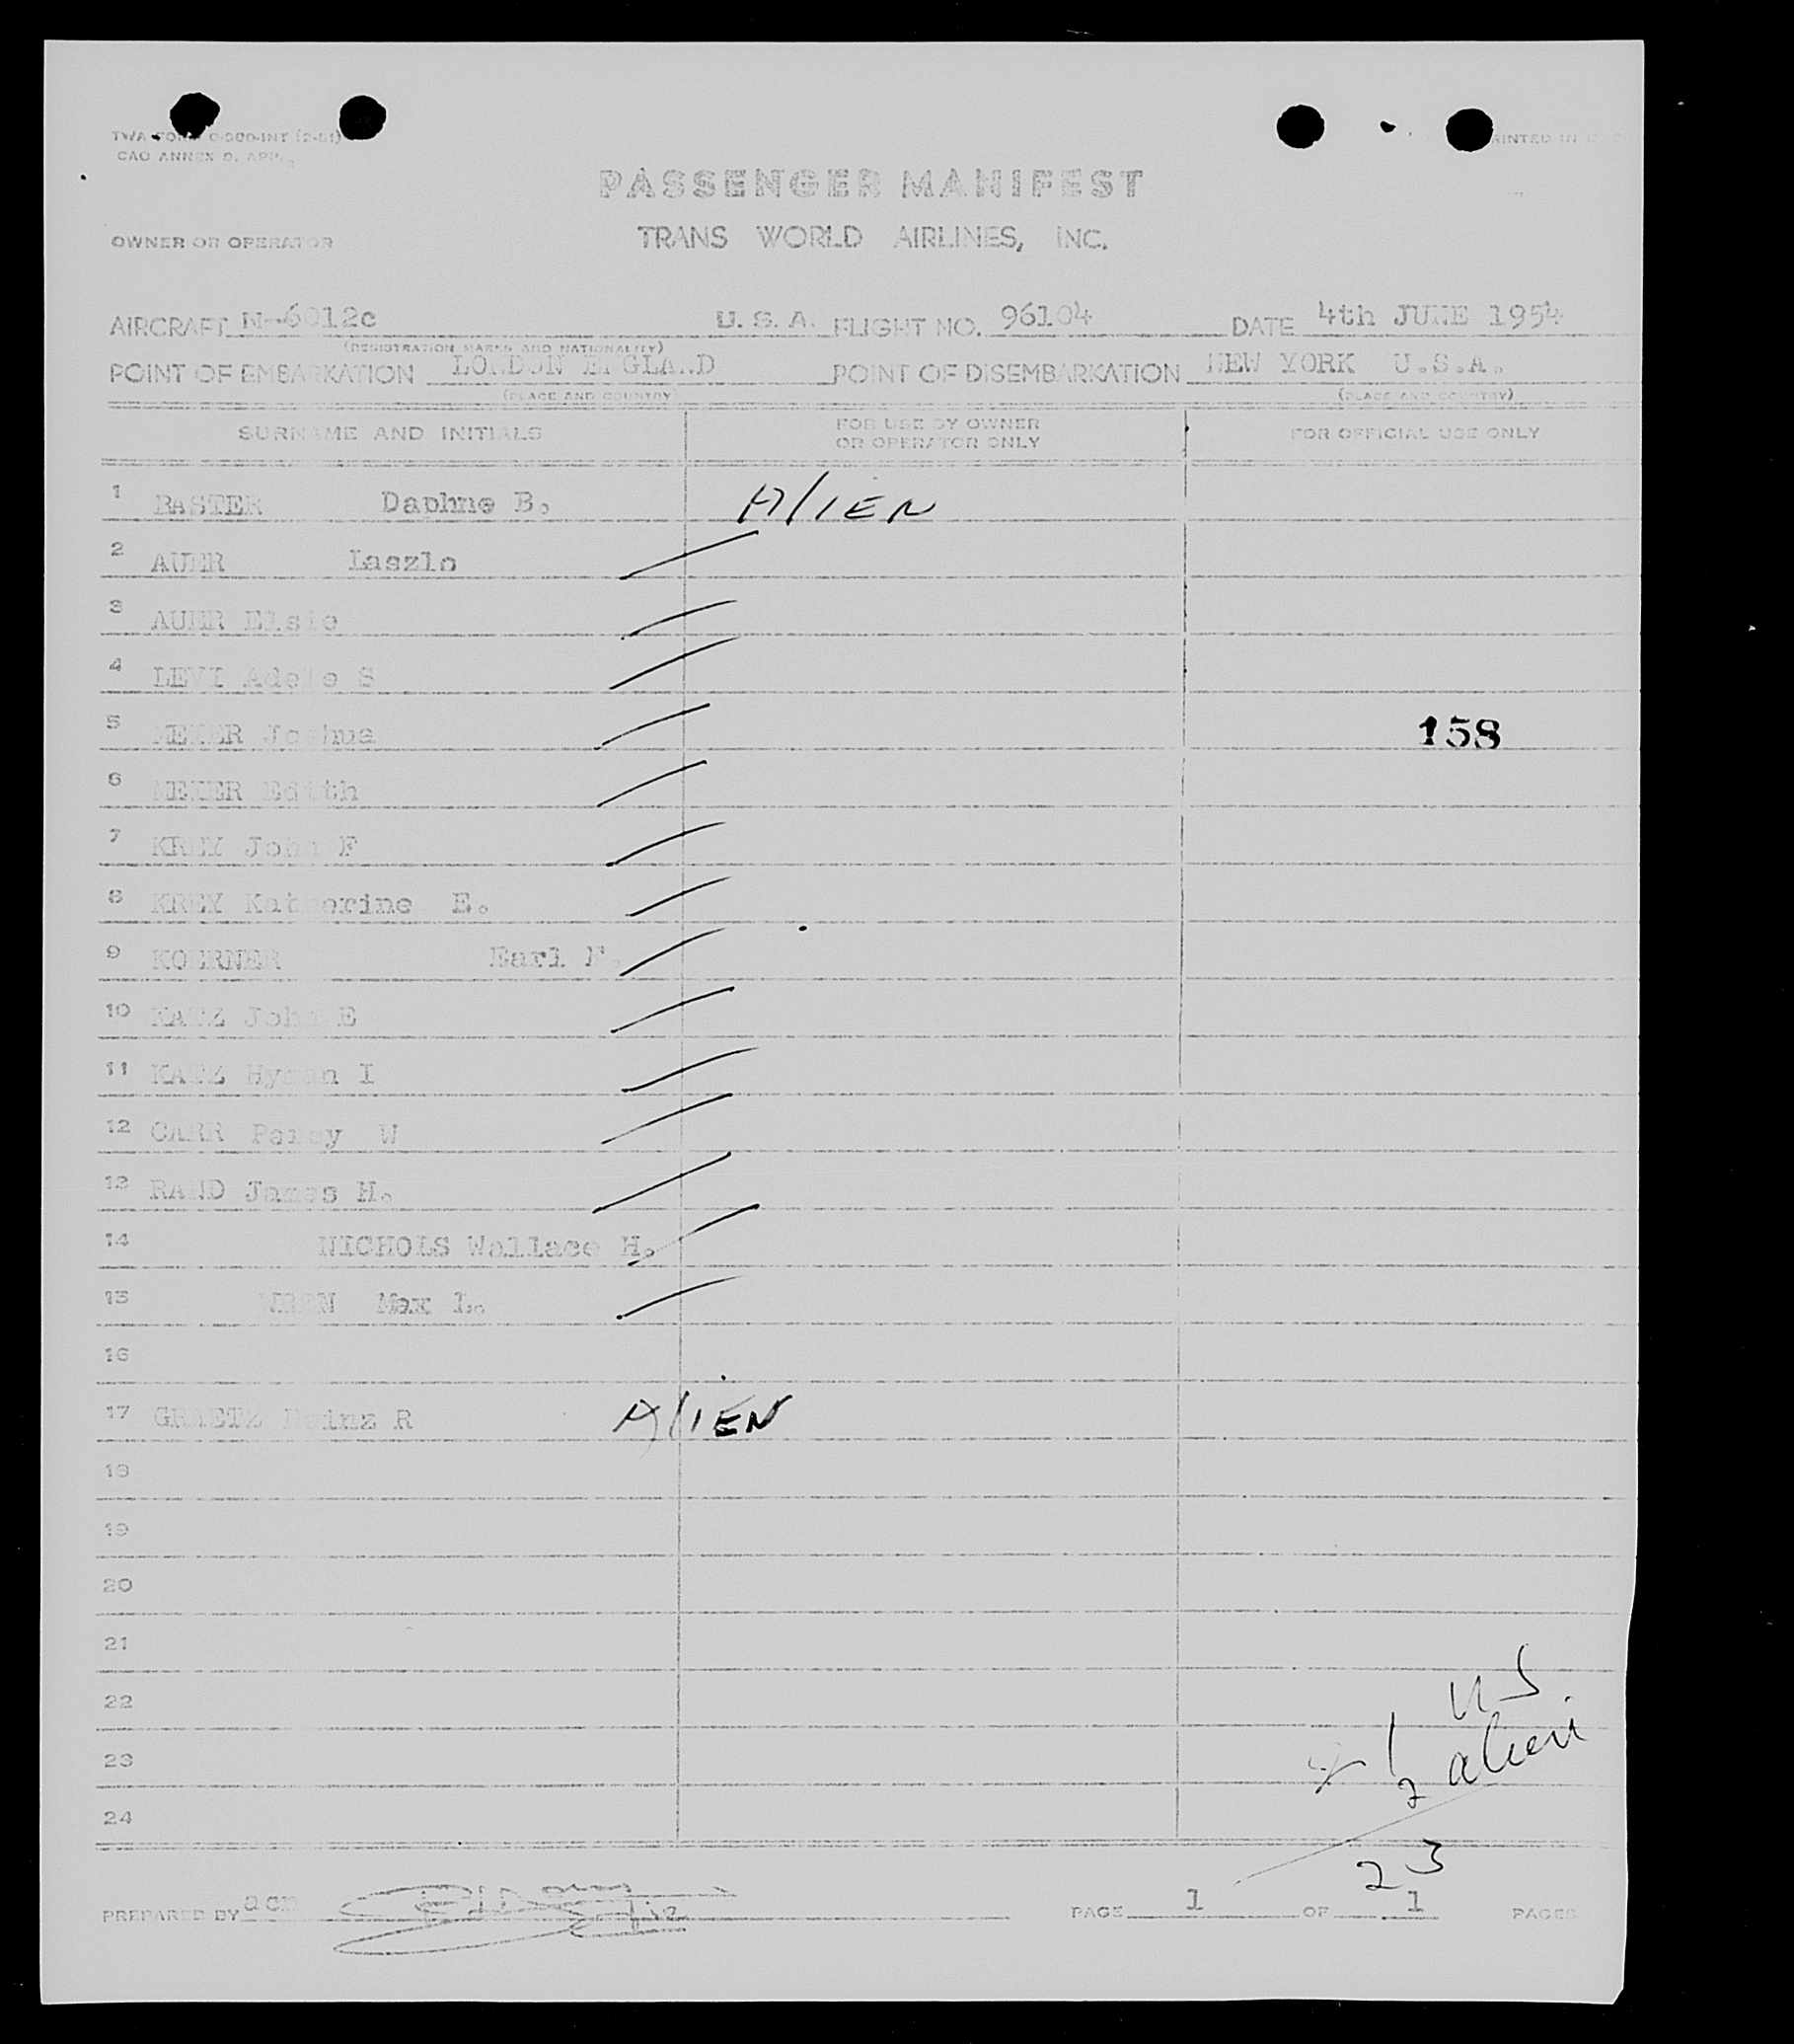 PASSENGER MANIFEST
OWNER OR OPERATOR TRANS WORLD AIRLINES, INC.
AIRCRAFT N-6012c U.S.A. FLIGHT NO. 96104 DATE 4th JUNE 1954
(REGISTRATION MARKS AND NATIONALITY)
POINT OF EMBARKATION LONDON ENGLAND POINT OF DISEMBARKATION NEW YORK U.S.A.
(PLACE AND COUNTRY) (PLACE AND COUNTRY)
SURNAME AND INITIALS FOR USE BY OWNER OR OPERATOR ONLY FOR OFFICIAL USE ONLY
1 Daphne B. AlIEN
2 AUER Laszlo
3 AUER Elsie
4 LEVI Adele S
5 Joshua 158
6 Edith
7 KREY John F
8 KREY Katherine E.
9 KOERNER Earl F.
10 KATZ John E
11 KATZ Hyman I
12 CARR Percy W
13 RAND James H.
14 NICHOLS Wallace H.
15 Max L.
16
17 Heinz R AlIEN
18
19
20
21
22 US
23 2 alien
24
23
PREPARED BY PAGE 1 OF 1 PAGES